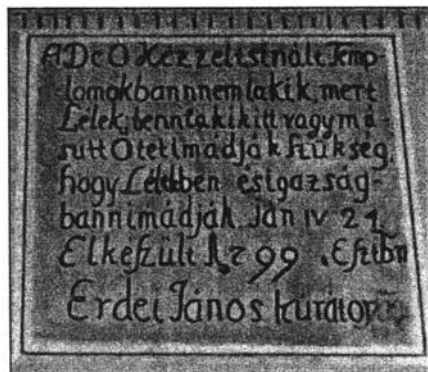 A De O Kezzeltsinált Temp-
lomokbannnem lakik, mert
Lélek, benntakikitt vagy má-
sutt Otetimádják Szükség,
hogy Lélekben ésigazság-
bannimádják. Ján IV 24.
Elkeszült A. 1799. Esztbñ
Erdei János kurátor